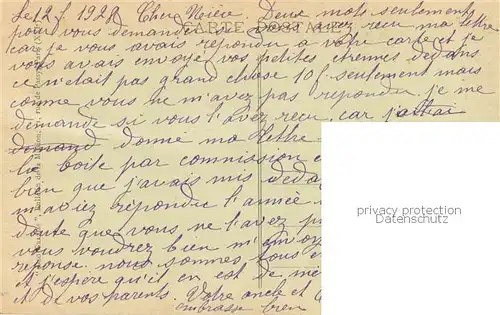 Le 12.f. 1929 Cher Nièce. Deux mots seulements
CARTE POSTALE
pour vous demander si vous avez reçu ma lettre
car je vous avais répondu a votre carte et je
vous avais envoyé vos petites étrennes dedans
ce n'était pas grand chose 10f. seulement mais
comme vous ne m'avez pas répondu. je me
demande si vous l'avez reçu. car j'
donné ma lettre
la boite par commission
bien que j'avais mis deda
m'aviez répondre l'année
doute que vous ne l'avez
vous voudrez bien m'
reponse. nous sommes tous
et j'espère qu'il en est de me
et de vos parents. Votre oncle et
embrasse bien
privacy protection
Datenschutz